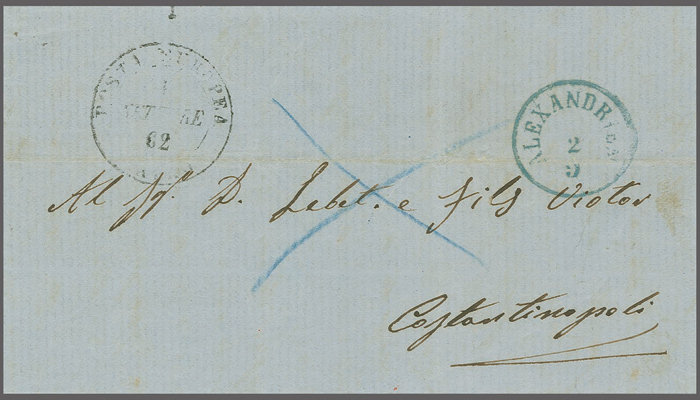 POSTA EUROPEA
62
ALEXANDRIEN
2
9
Al Sig. D. Lebet. e Fils Victor
Costantinopoli